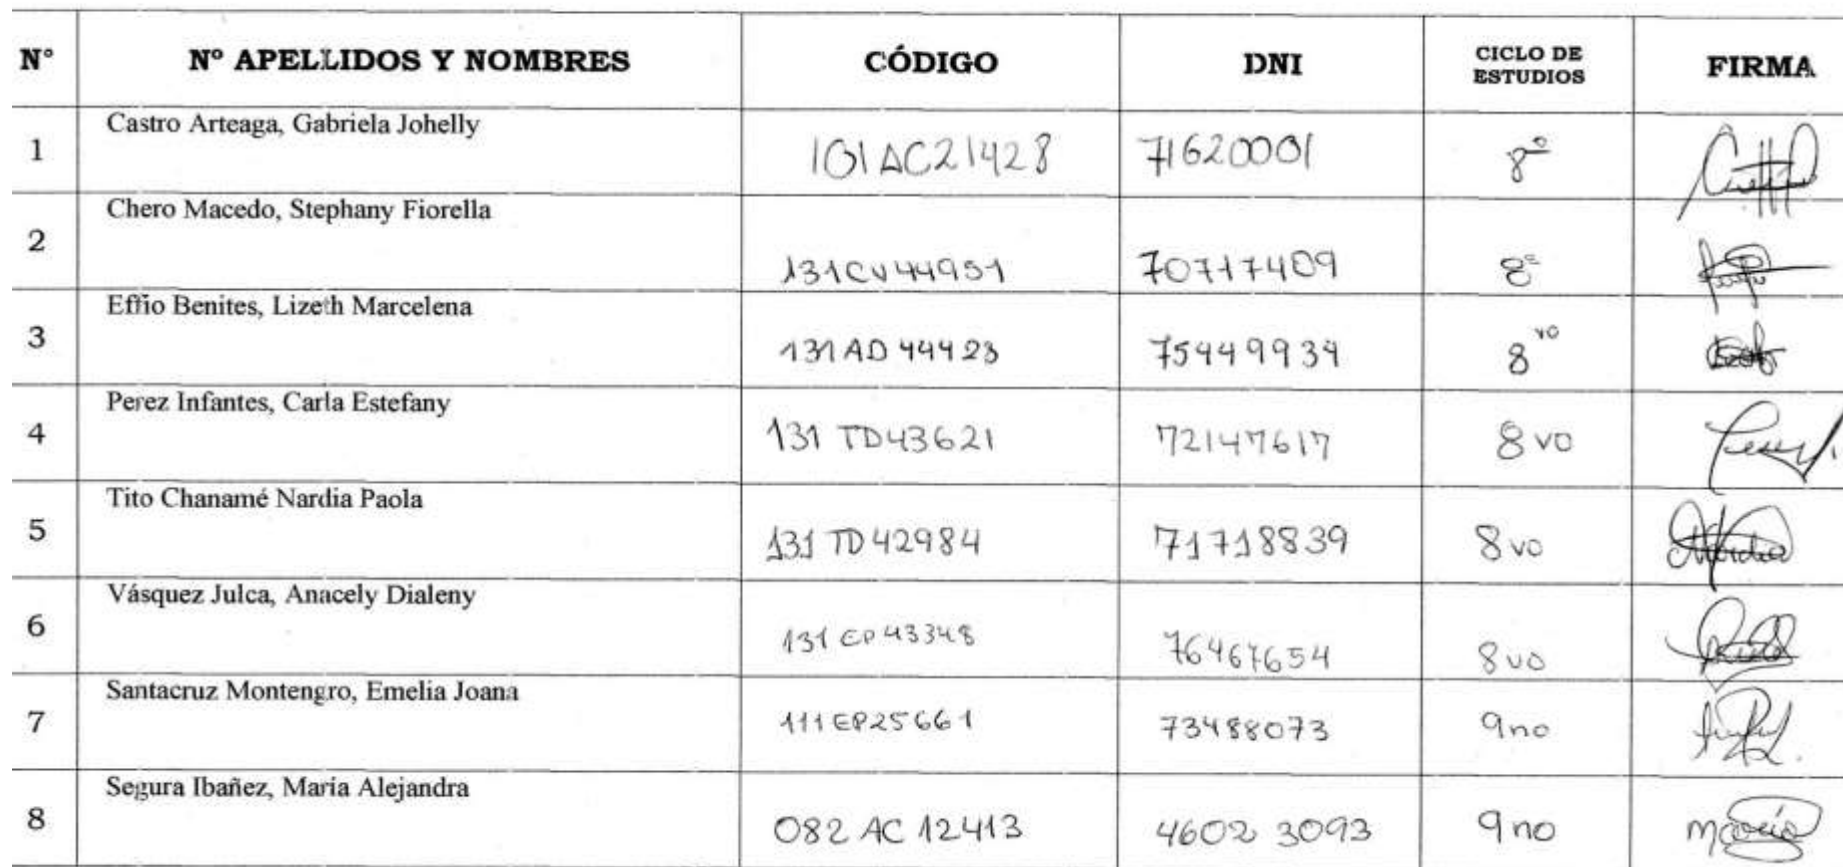 N° Nº APELLIDOS Y NOMBRES CÓDIGO DNI CICLO DE ESTUDIOS FIRMA
1 Castro Arteaga, Gabriela Johelly 101AC21428 71620001 8º
2 Chero Macedo, Stephany Fiorella 131CV44951 70717409 8º
3 Effio Benites, Lizeth Marcelena 131AD44423 75449934 8vo
4 Perez Infantes, Carla Estefany 131 TD43621 72147617 8 vo
5 Tito Chanamé Nardia Paola 131 TD 42984 71718839 8 vo
6 Vásquez Julca, Anacely Dialeny 131 EP 43348 76467654 8 vo
7 Santacruz Montengro, Emelia Joana 111EP25661 73488073 9no
8 Segura Ibañez, María Alejandra 082 AC 12413 4602 3093 9 no